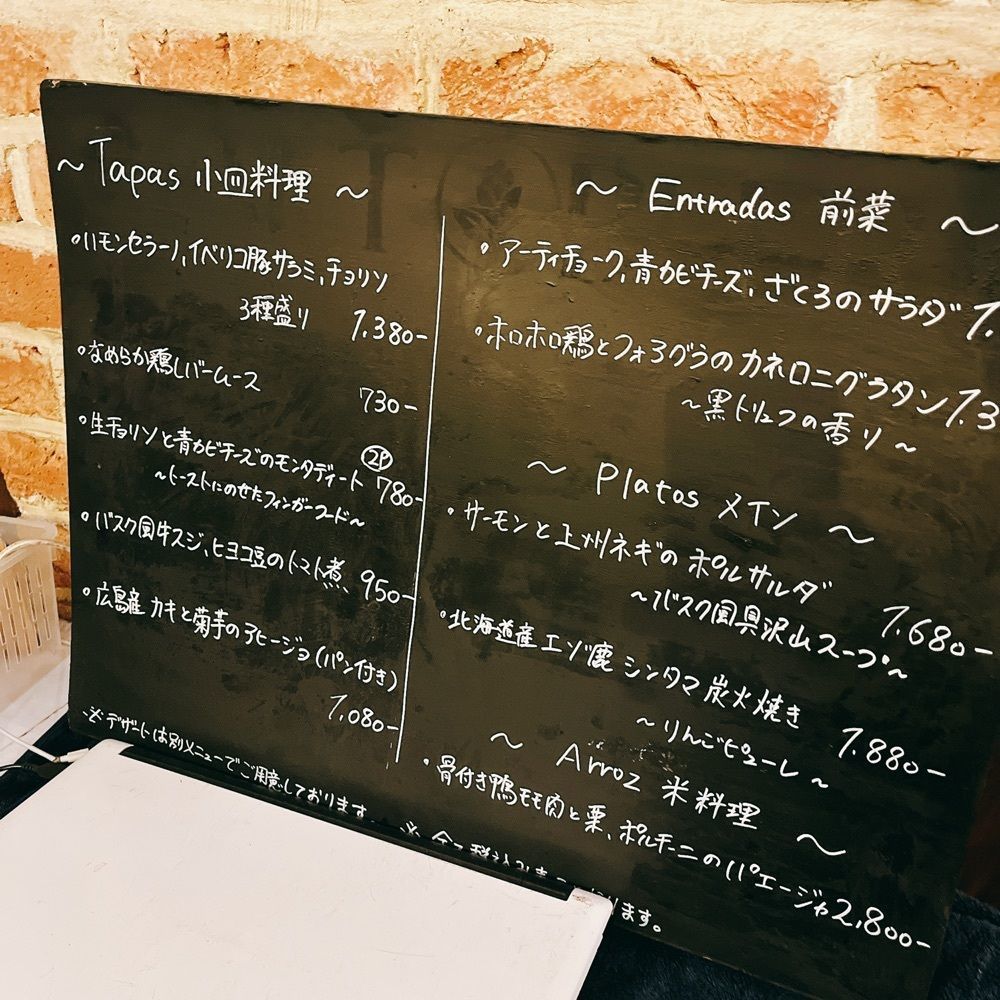 ～ Tapas 小皿料理 ～
・ハモンセラーノ、イベリコ豚サラミ、チョリソ
3種盛り 1.380-
・なめらか鶏レバームース
730-
・生チョリソと青カビチーズのモンタディート 2P 780-
～トーストにのせたフィンガーフード～
・バスク風牛スジ、ヒヨコ豆のトマト煮 950-
・広島産 カキと菊芋のアヒージョ(パン付き)
1.080-
※デザートは別メニューでご用意しております。
～ Entradas 前菜 ～
・アーティチョーク、青カビチーズ、ざくろのサラダ
・ホロホロ鶏とフォアグラのカネロニグラタン
～黒トリュフの香り～
～ Platos メイン ～
・サーモンと上州ネギのポルサルダ
～バスク風具沢山スープ～ 1.680-
・北海道産エゾ鹿 シンタマ 炭火焼き
～りんごピューレ～ 1.880-
～ Arroz 米料理 ～
・骨付き鴨モモ肉と栗、ポルチーニのパエージャ 2.800-
ります。